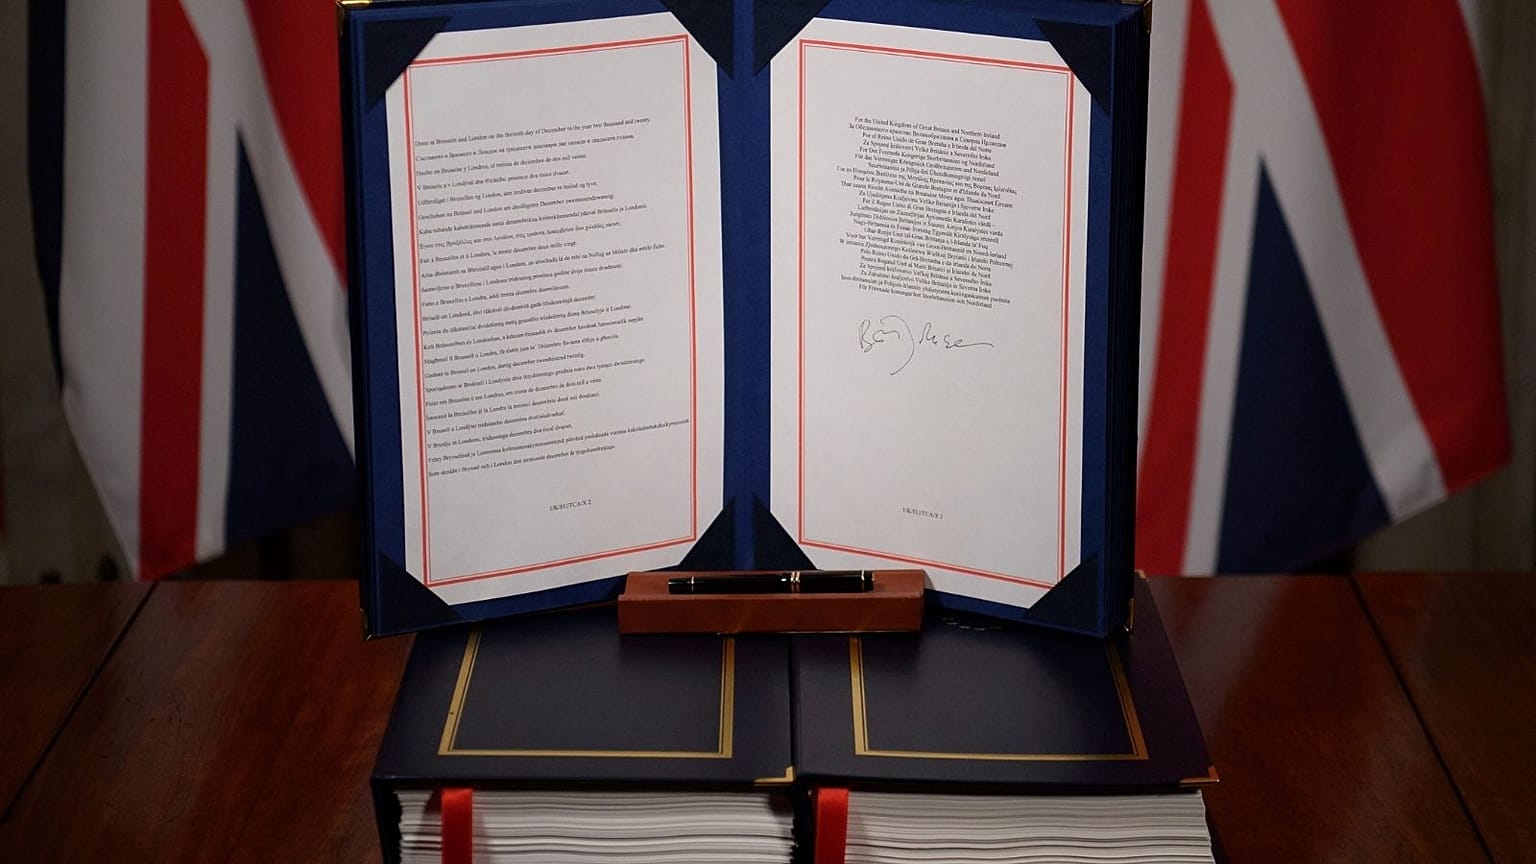 Done at Brussels and London on the thirtieth day of December in the year two thousand and twenty.
Съставено в Брюксел и Лондон на тридесети декември две хиляди и двадесета година.
Hecho en Bruselas y Londres, el treinta de diciembre de dos mil veinte.
V Bruselu a v Londýně dne třicátého prosince dva tisíce dvacet.
Udfærdiget i Bruxelles og London, den tredivte december to tusind og tyve.
Geschehen zu Brüssel und London am dreißigsten Dezember zweitausendzwanzig.
Kahe tuhande kahekümnenda aasta detsembrikuu kolmekümnendal päeval Brüsselis ja Londonis.
Έγινε στις Βρυξέλλες και στο Λονδίνο, στις τριάντα Δεκεμβρίου δύο χιλιάδες είκοσι.
Fait à Bruxelles et à Londres, le trente décembre deux mille vingt.
Arna dhéanamh sa Bhruiséil agus i Londain, an tríochadú lá de mhí na Nollag sa bhliain dhá mhíle fiche.
Sastavljeno u Bruxellesu i Londonu tridesetog prosinca godine dvije tisuće dvadesete.
Fatto a Bruxelles e Londra, addì trenta dicembre duemilaventi.
Briselē un Londonā, divi tūkstoši divdesmitā gada trīsdesmitajā decembrī.
Priimta du tūkstančiai dvidešimtų metų gruodžio trisdešimtą dieną Briuselyje ir Londone.
Kelt Brüsszelben és Londonban, a kétezer-huszadik év december havának harmincadik napján.
Magħmul fi Brussell u Londra, fit-tletin jum ta' Diċembru fis-sena elfejn u għoxrin.
Gedaan te Brussel en Londen, dertig december tweeduizend twintig.
Sporządzono w Brukseli i Londynie dnia trzydziestego grudnia roku dwa tysiące dwudziestego.
Feito em Bruxelas e em Londres, em trinta de dezembro de dois mil e vinte.
Întocmit la Bruxelles și la Londra la treizeci decembrie două mii douăzeci.
V Bruseli a Londýne tridsiateho decembra dvetisícdvadsať.
V Bruslju in Londonu, tridesetega decembra dva tisoč dvajset.
Tehty Brysselissä ja Lontoossa kolmantenakymmenentenä päivänä joulukuuta vuonna kaksituhattakaksikymmentä
Som skedde i Bryssel och i London den trettionde december år tjugohundratjugo.
UK/EU/TCA/X 2
For the United Kingdom of Great Britain and Northern Ireland
За Обединеното кралство Великобритания и Северна Ирландия
Por el Reino Unido de Gran Bretaña e Irlanda del Norte
Za Spojené království Velké Británie a Severního Irska
For Det Forenede Kongerige Storbritannien og Nordirland
Für das Vereinigte Königreich Großbritannien und Nordirland
Suurbritannia ja Põhja-Iiri Ühendkuningriigi nimel
Για το Ηνωμένο Βασίλειο της Μεγάλης Βρετανίας και της Βόρειας Ιρλανδίας
Pour le Royaume-Uni de Grande-Bretagne et d'Irlande du Nord
Thar ceann Ríocht Aontaithe na Breataine Móire agus Thuaisceart Éireann
Za Ujedinjenu Kraljevinu Velike Britanije i Sjeverne Irske
Per il Regno Unito di Gran Bretagna e Irlanda del Nord
Lielbritānijas un Ziemeļīrijas Apvienotās Karalistes vārdā –
Jungtinės Didžiosios Britanijos ir Šiaurės Airijos Karalystės vardu
Nagy-Britannia és Észak-Írország Egyesült Királysága részéről
Għar-Renju Unit tal-Gran Britanja u l-Irlanda ta' Fuq
Voor het Verenigd Koninkrijk van Groot-Brittannië en Noord-Ierland
W imieniu Zjednoczonego Królestwa Wielkiej Brytanii i Irlandii Północnej
Pelo Reino Unido da Grã-Bretanha e da Irlanda do Norte
Pentru Regatul Unit al Marii Britanii și Irlandei de Nord
Za Spojené kráľovstvo Veľkej Británie a Severného Írska
Za Združeno kraljestvo Velika Britanija in Severna Irska
Ison-Britannian ja Pohjois-Irlannin yhdistyneen kuningaskunnan puolesta
För Förenade konungariket Storbritannien och Nordirland
UK/EU/TCA/X 3